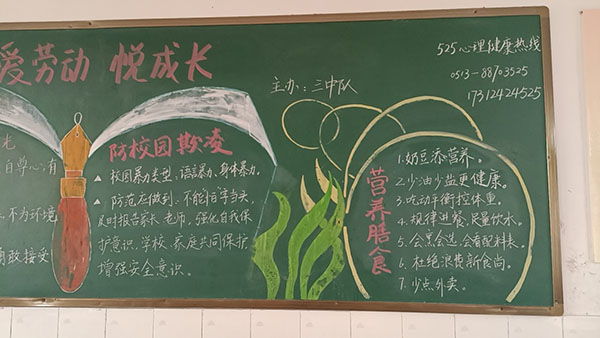 爱劳动 悦成长
主办：三中队
525心理健康热线
0513-88703525
17312424525
自尊心有
不为环境
勇敢接受
防校园欺凌
▲ 校园暴力类型：语言暴力、身体暴力。
▲ 防范应做到：不能忍字当头，
及时报告家长、老师，强化自我保
护意识，学校、家庭共同保护，
增强安全意识。
营养膳食
1.奶豆添营养。
2.少油少盐更健康。
3.吃动平衡控体重。
4.规律进餐，足量饮水。
5.会烹会选，会看配料表。
6.杜绝浪费新食尚。
7.少点外卖。